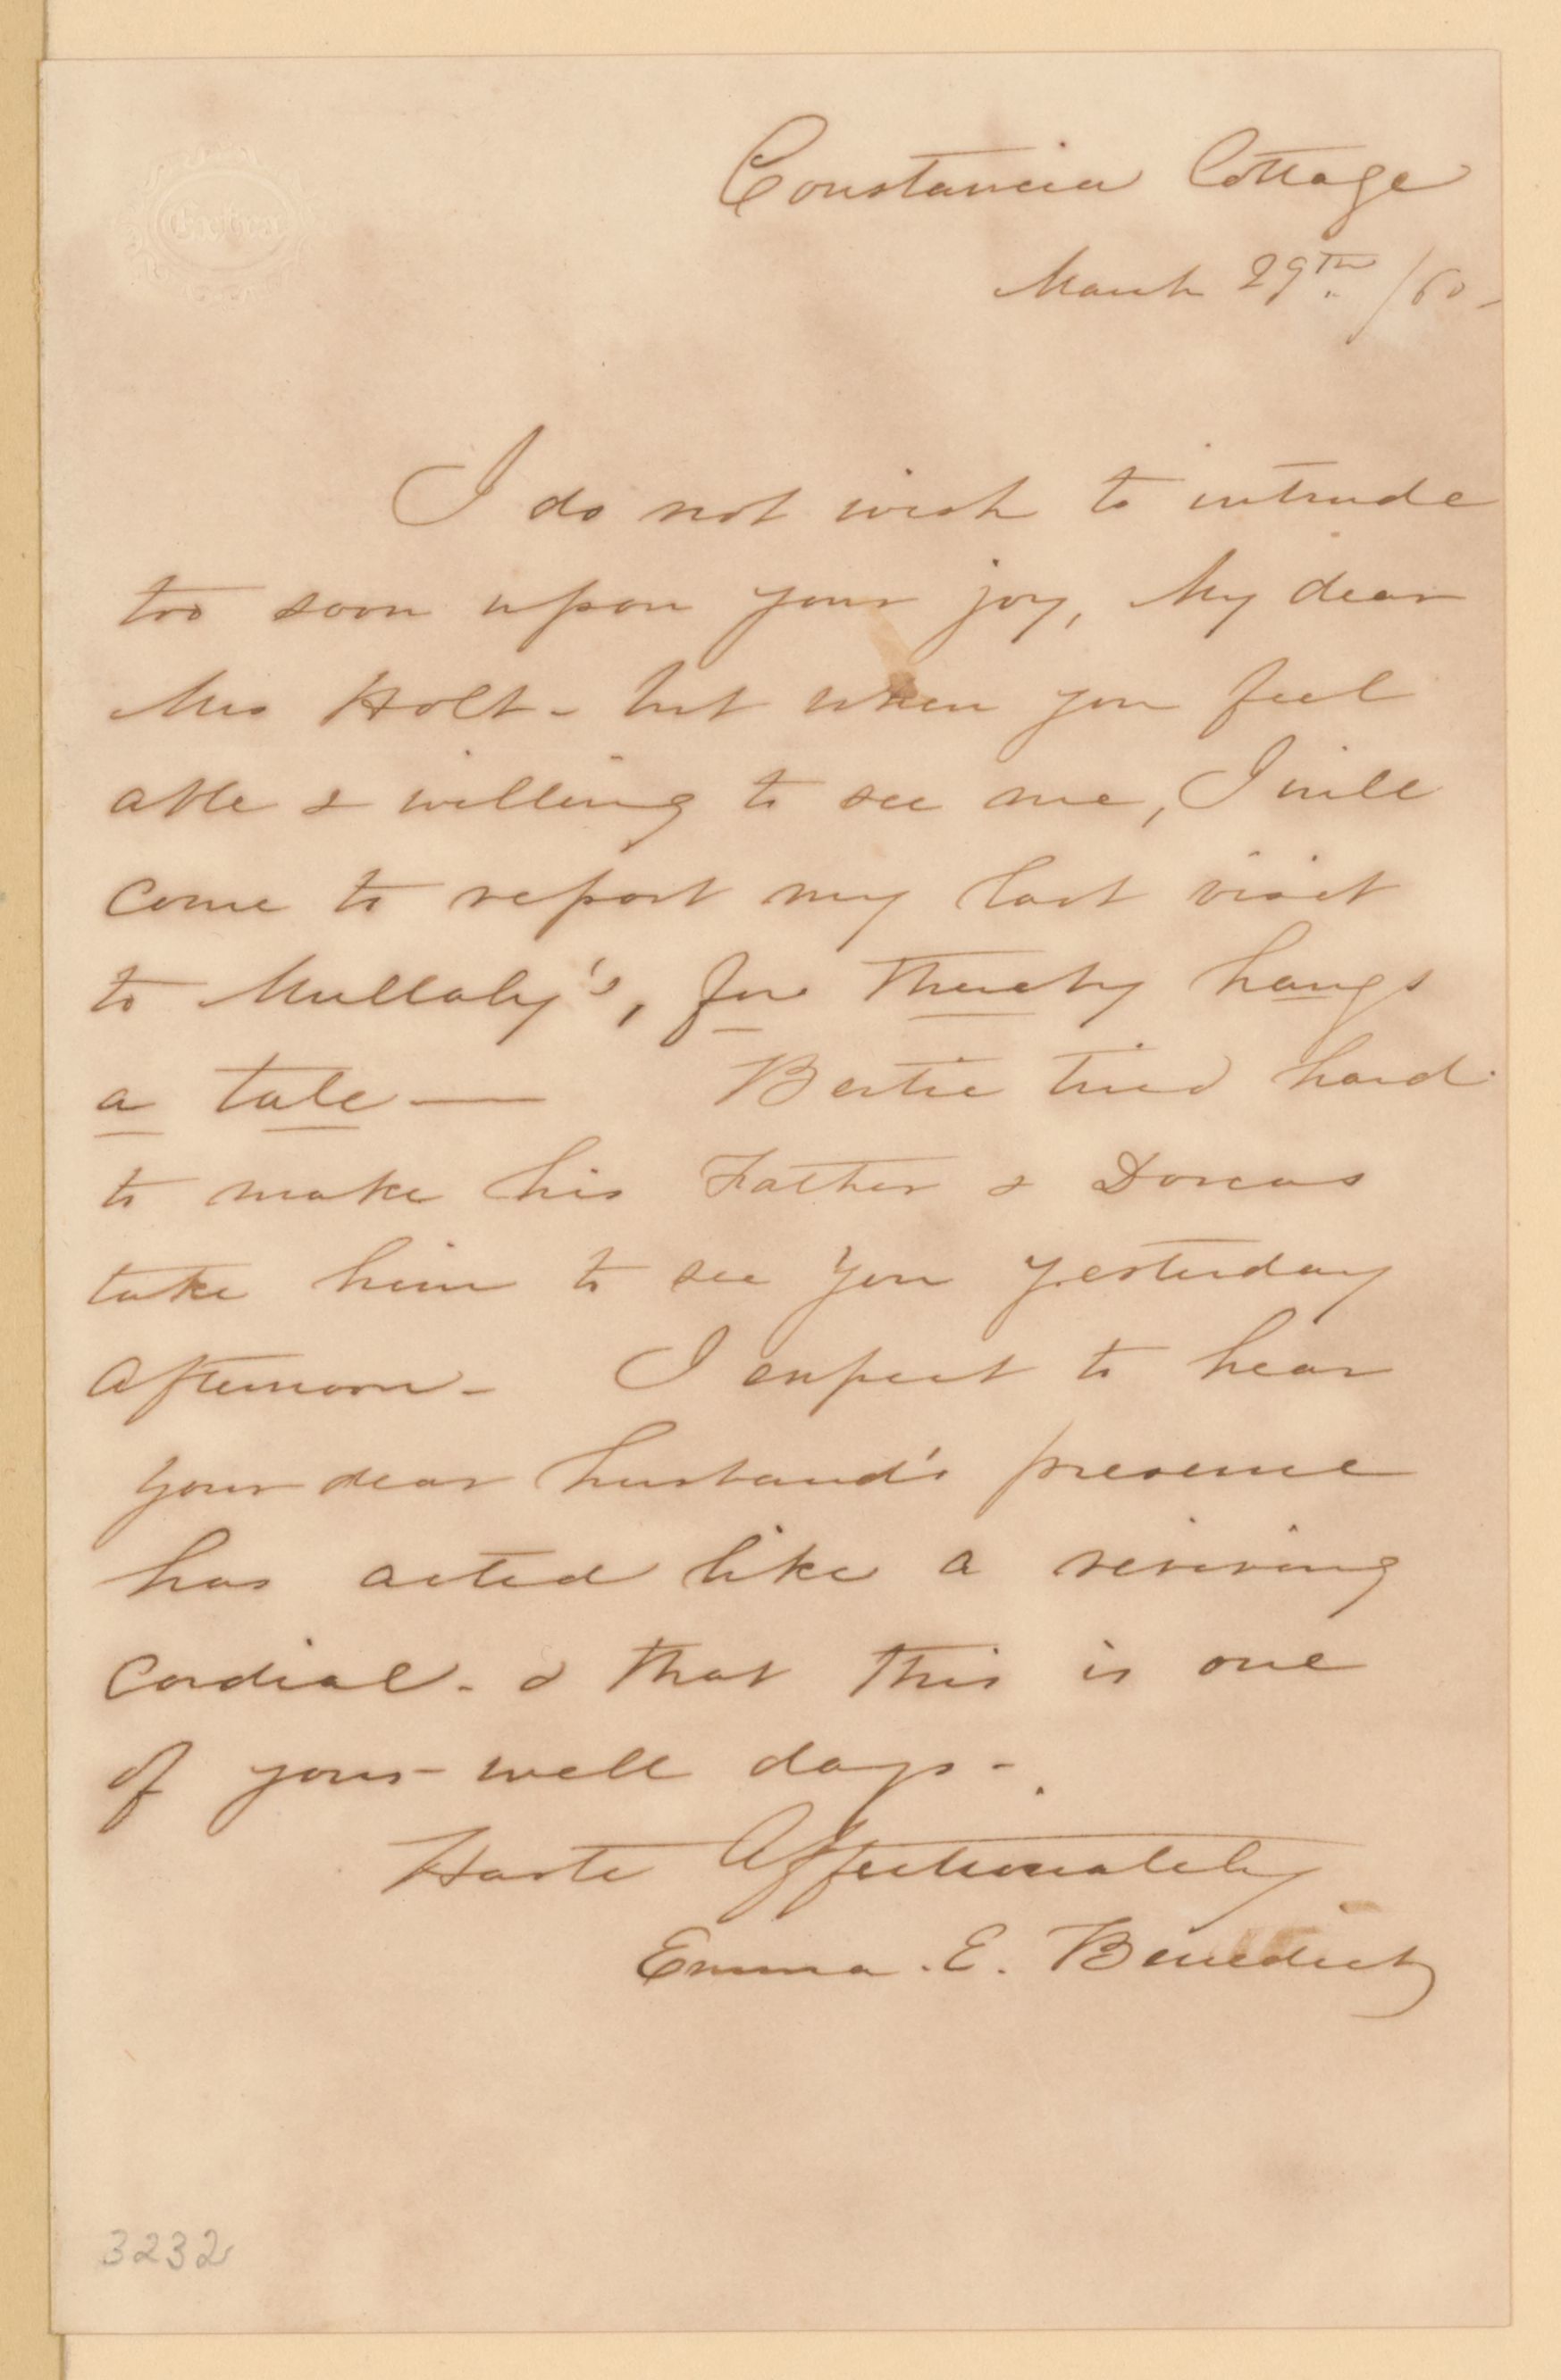 Constancia Cottage
March 29th /60-
I do not wish to intrude
too soon upon your joy, My dear
Mrs Holt - but when you feel
able & willing to see me, I will
come to report my last visit
to Mullaly's, for thereby hangs
a tale —     Bertie tried hard
to make his Father & Dorcas
take him to see you yesterday
afternoon -     I expect to hear
your dear husband's presence
has acted like a reviving
Cordial - & that this is one
of your well days -
Haste Affectionately
Emma . E. Benedict
3232